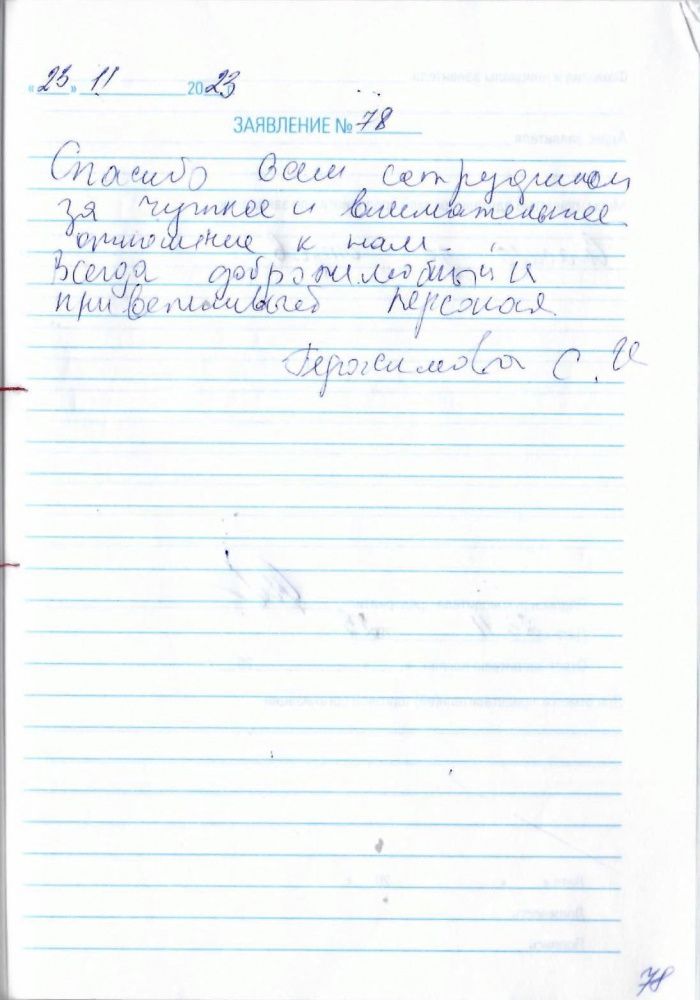 «23» 11 2023
ЗАЯВЛЕНИЕ № 78
Спасибо Вам сотрудникам
за чуткое и внимательное
отношение к нам.
Всегда доброжилюбный и
приветливый персонал
Герасимова С. И
78